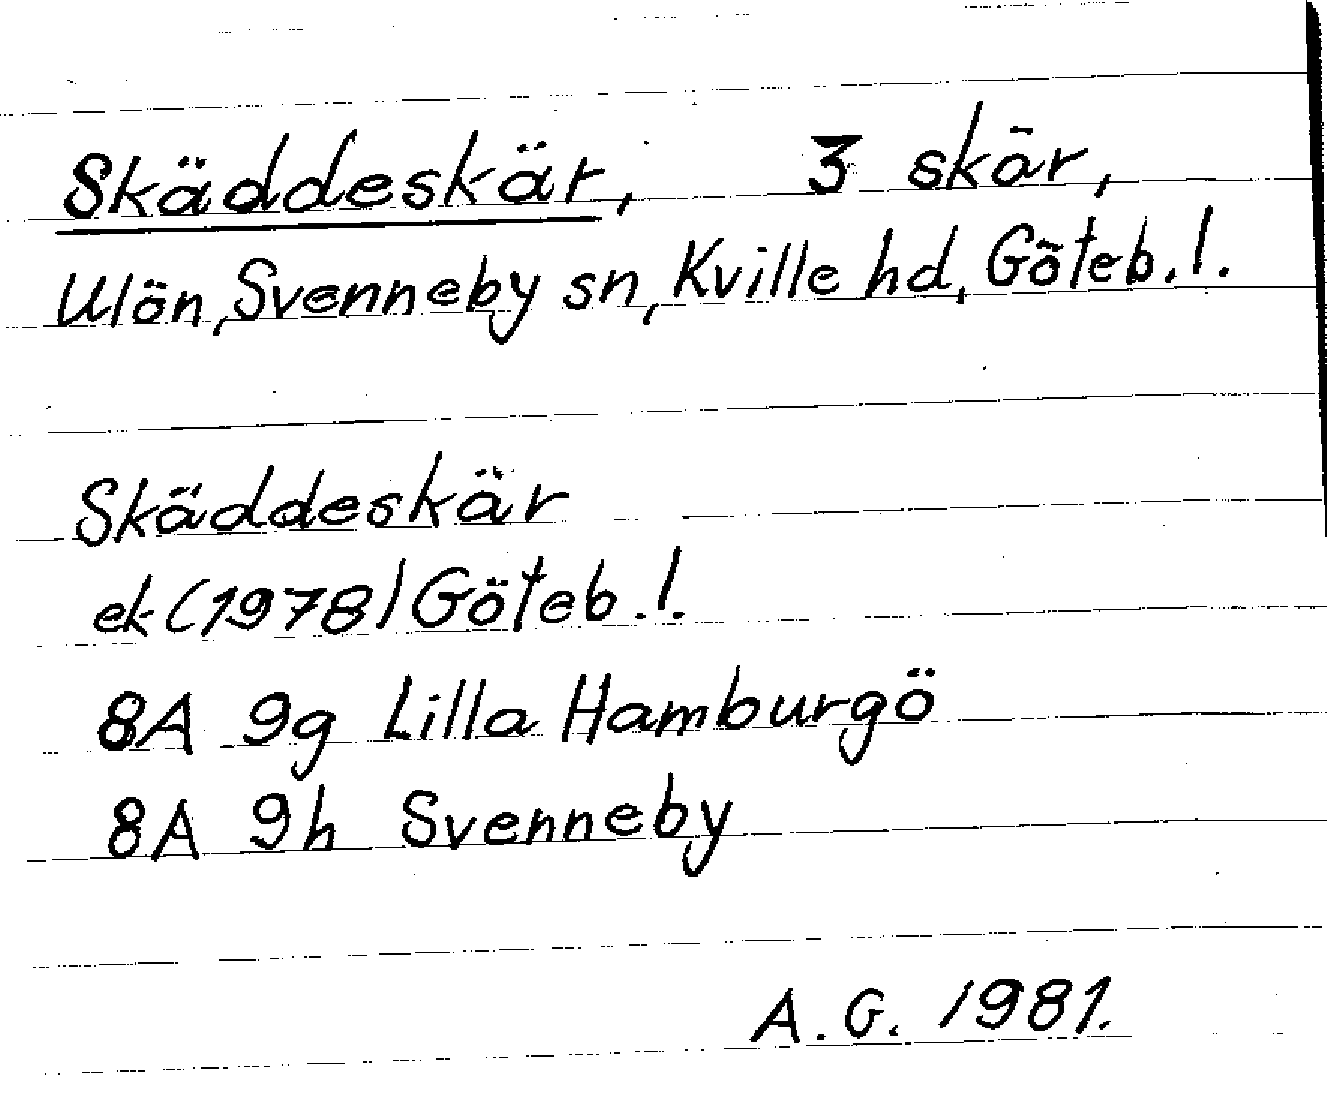 Skäddeskär, 3 skär,
Ulön, Svenneby sn, Kville hd, Göteb.l.
Skäddeskär
ek (1978) Göteb.l.
8A 9g Lilla Hamburgö
8A 9h Svenneby
A.G. 1981.